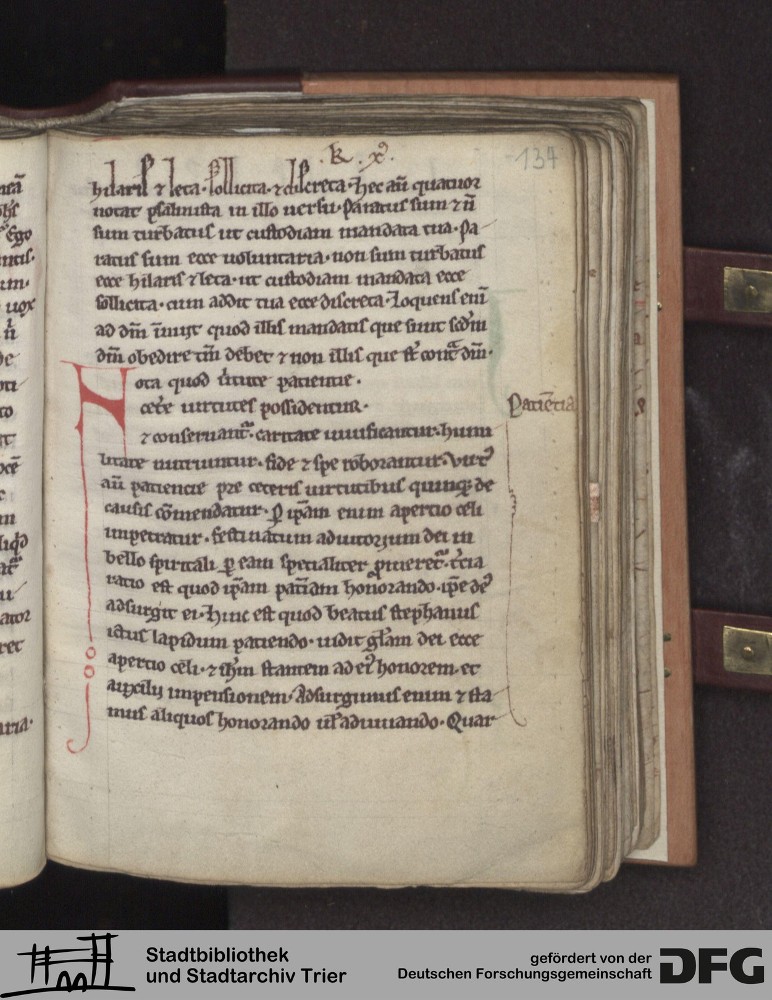 .k. x᷒.
134
hilaris ⁊ leta. sollicita. ⁊ discreta. Hec aū quatuor
notat psalmista in illo uersu. Paratus sum ⁊ n̄
sum turbatus ut custodiam mandata tua. Pa
ratus sum ecce uoluntaria. non sum turbatus
ecce hilaris ⁊ leta. ut custodiam mandata ecce
sollicita. cum addit tua ecce discreta. Loquens enī
ad dm̄ īnuit quod illis mandatis que sunt scdm̄
dm̄ obedire tm̄ debet ⁊ non illis que st̄ cont̄ dm̄.
Nota quod uirtute patientie.
cet̄e uirtutes possidentur.
⁊ conseruant᷑. caritate uiuificantur. humi
litate nutriuntur. fide ⁊ spe roborantur. Virt᷒
aū patientie pre ceteris uirtutibus quinq; de
causis cōmendatur. P ip̄am enim apertio celi
impetratur. festinatum adiutorium dei in
bello spiritali p eam specialiter
ratio est quod ip̄am patīam honorando. ip̄e de᷒
adsurgit ei. Hinc est quod beatus stephanus
ictus lapidum patiendo. uidit gl̄am dei ecce
apertio celi. ⁊ ihm̄ stantem ad ei᷒ honorem. et
auxilij impensionem. Adsurgimus enim ⁊ sta
mus aliquos honorando ul̄ adiuuando. Quar
Patiētia
Stadtbibliothek
und Stadtarchiv Trier
gefördert von der
Deutschen Forschungsgemeinschaft
DFG